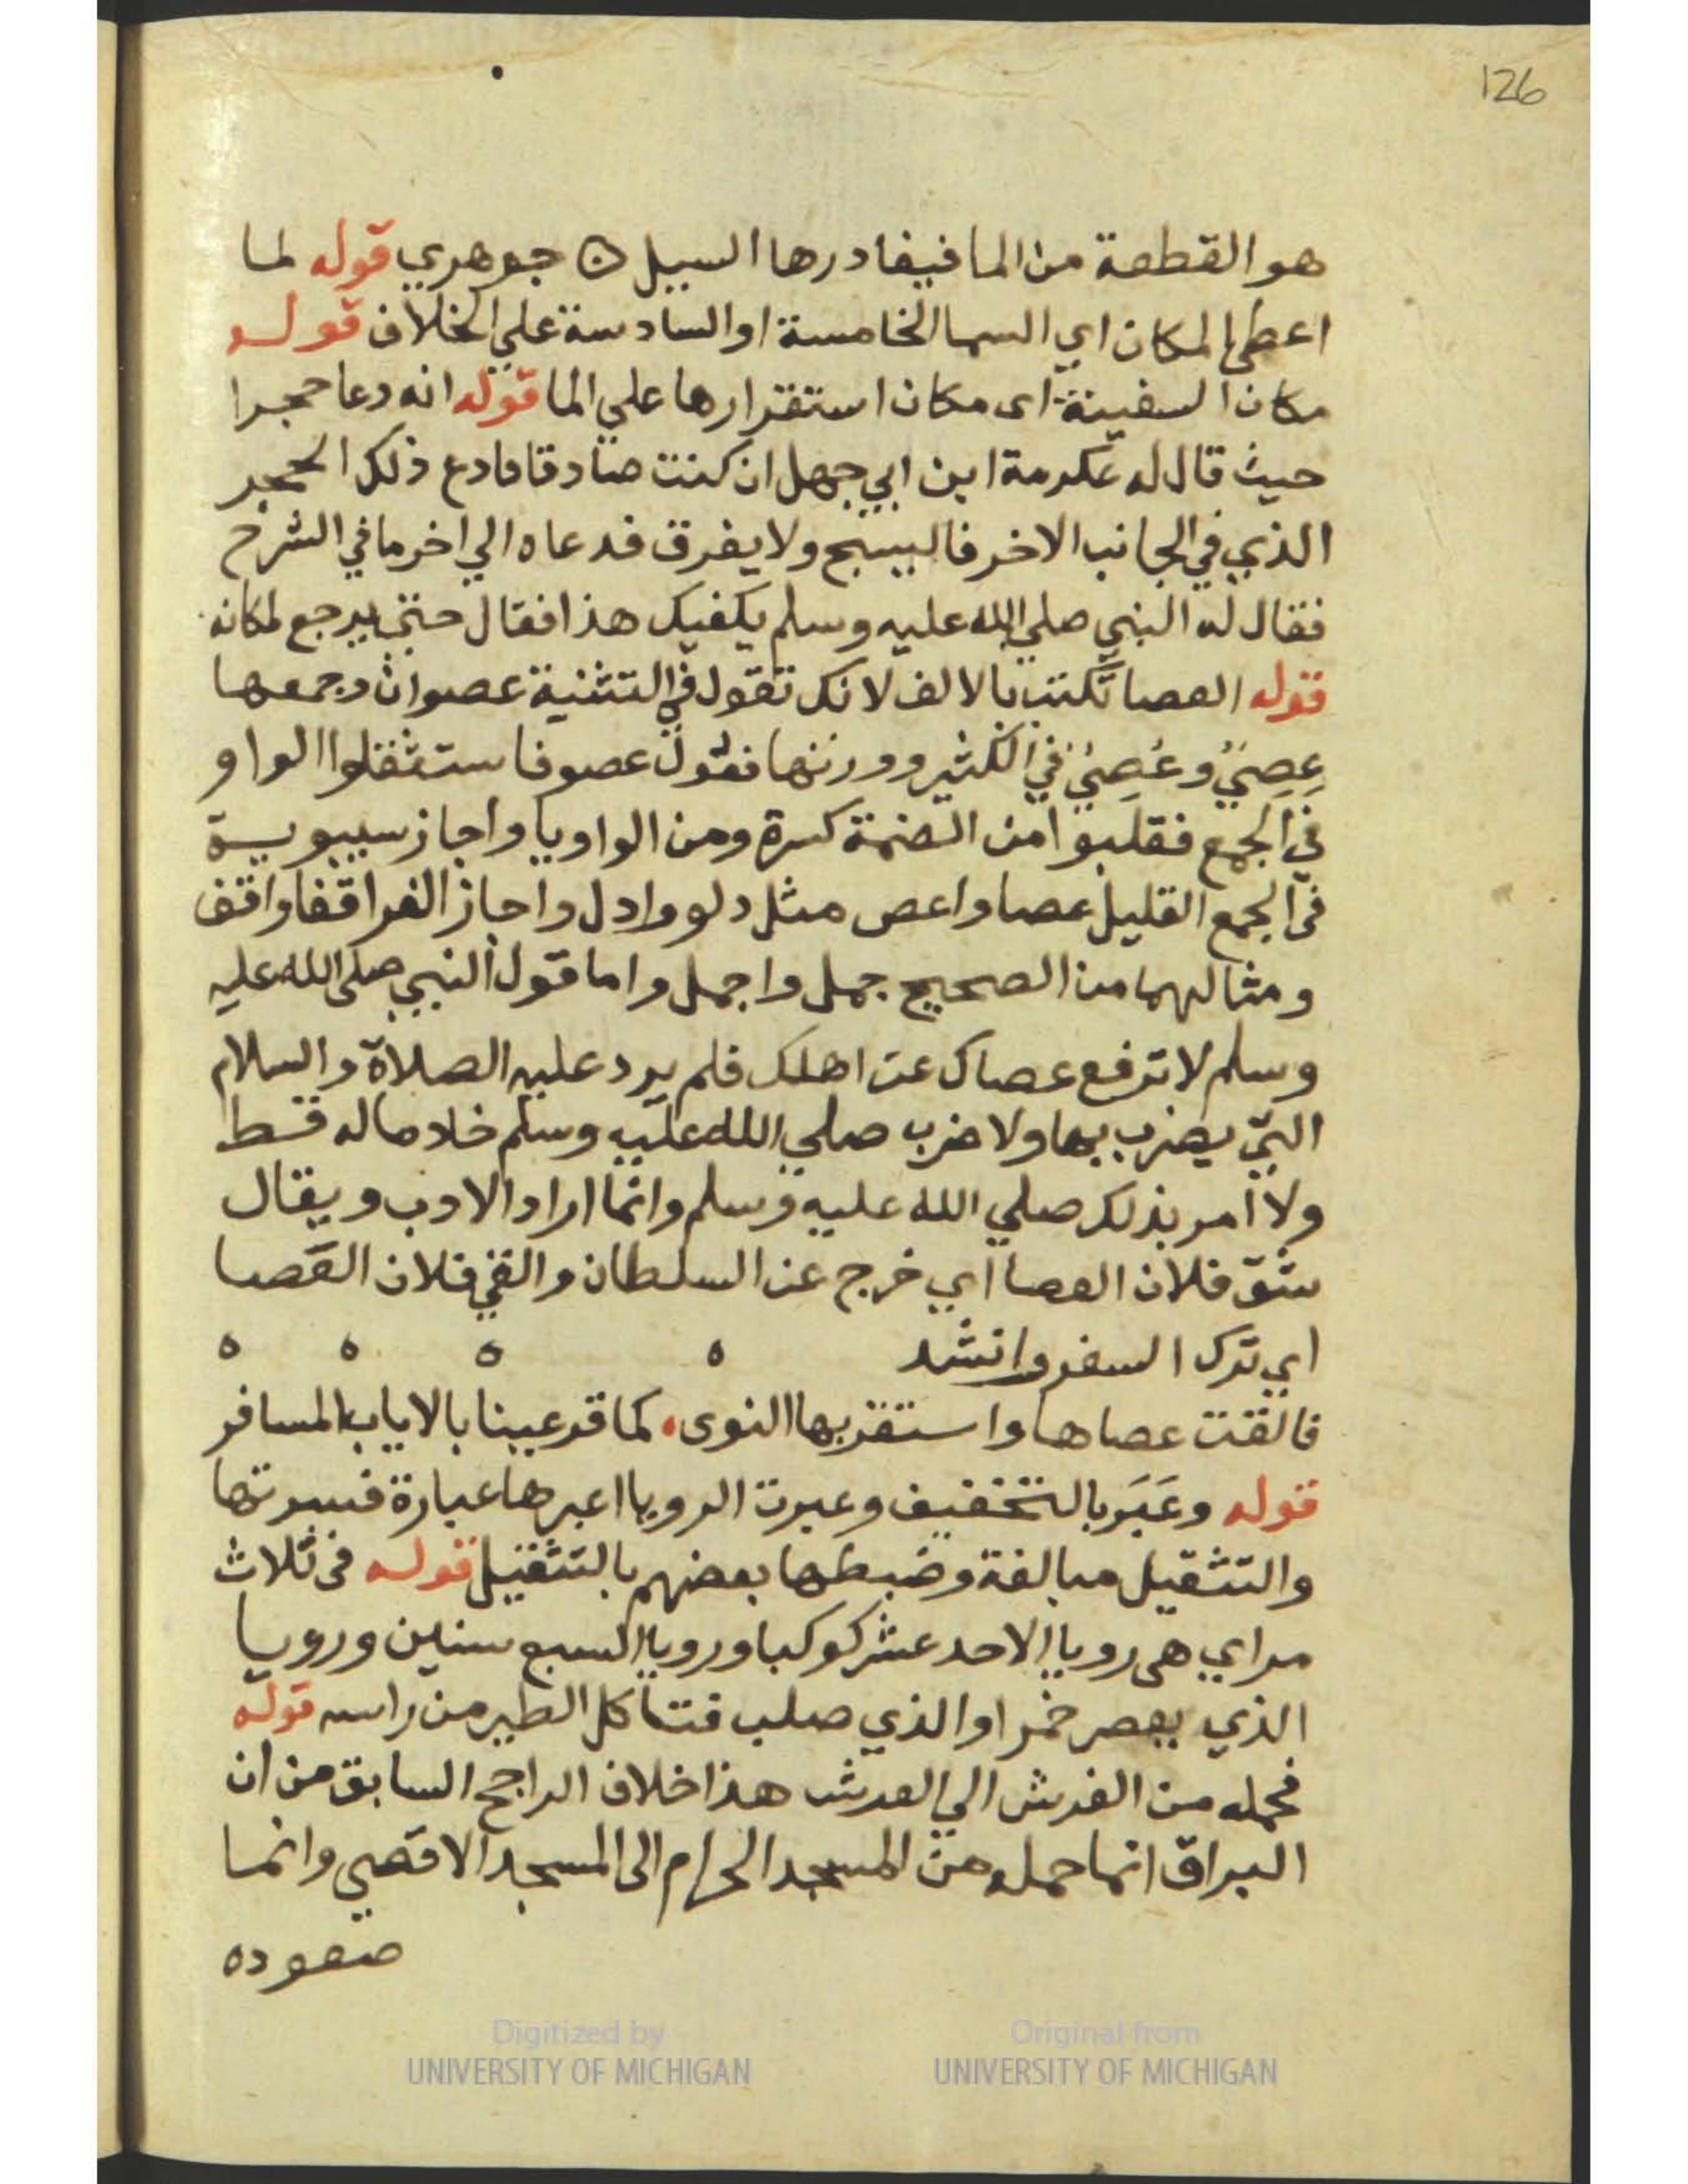 126
هو القطعة من الما فيغادرها السيل ه جوهري قوله لما
اعطي المكان اي السما الخامسة او السادسة علي الخلاف قوله
مكان السفينة اى مكان استقرارها علي الما قوله انه دعا حجرا
حيث قال له عكرمة ابن ابي جهل ان كنت صادقا فادع ذلك الحجر
الذي في الجانب الاخر فاليسبح ولا يغرق فدعاه الي اخر ما في الشرح
فقال له النبي صلي الله عليه وسلم يكفيك هذا فقال حتي يرجع لمكانه
قوله العصا تكتب بالالف لانك تقول في التثنية عصوان وجمعها
عِصِيٌ وعُصِيٌ في الكثير ووزنها فعول عصو فاستثقلوا الواو
في الجمع فقلبوا من الضمة كسرة ومن الواو يا واجاز سيبويه
فى الجمع القليل عصا واعص مثل دلو وادل واجاز الفرا قفا واقف
ومثالهما من الصحيح جمل واجمل واما قول النبي صلى الله عليه
وسلم لا ترفع عصاك عن اهلك فلم يرد عليه الصلاة والسلام
التي يضرب بها ولا ضرب صلي الله عليه وسلم خادما له قط
ولا امر بذلك صلي الله عليه وسلم وانما اراد الادب ويقال
شق فلان العصا اي خرج عن السلطان والقي فلان العصا
اي ترك السفر وانشد ه ه ه ه
فالقت عصاها واستقر بها النوى. كما قر عينا بالاياب المسافر
قوله وعَبَر بالتخفيف وعبرت الرويا اعبرها عبارة فسرتها
والتثقيل مبالغة وضبطها بعضهم بالتثقيل قوله فى ثلاث
مراي هى رويا الاحد عشر كوكبا ورويا السبع سنين ورويا
الذي يعصر خمرا والذي صلب فتاكل الطير من راسه قوله
فحمله من الفرش الي العرش هذا خلاف الراجح السابق من ان
البراق انما حمله من المسجد الحرام الى المسجد الاقصي وانما
صعوده
Digitized by
UNIVERSITY OF MICHIGAN
Original from
UNIVERSITY OF MICHIGAN